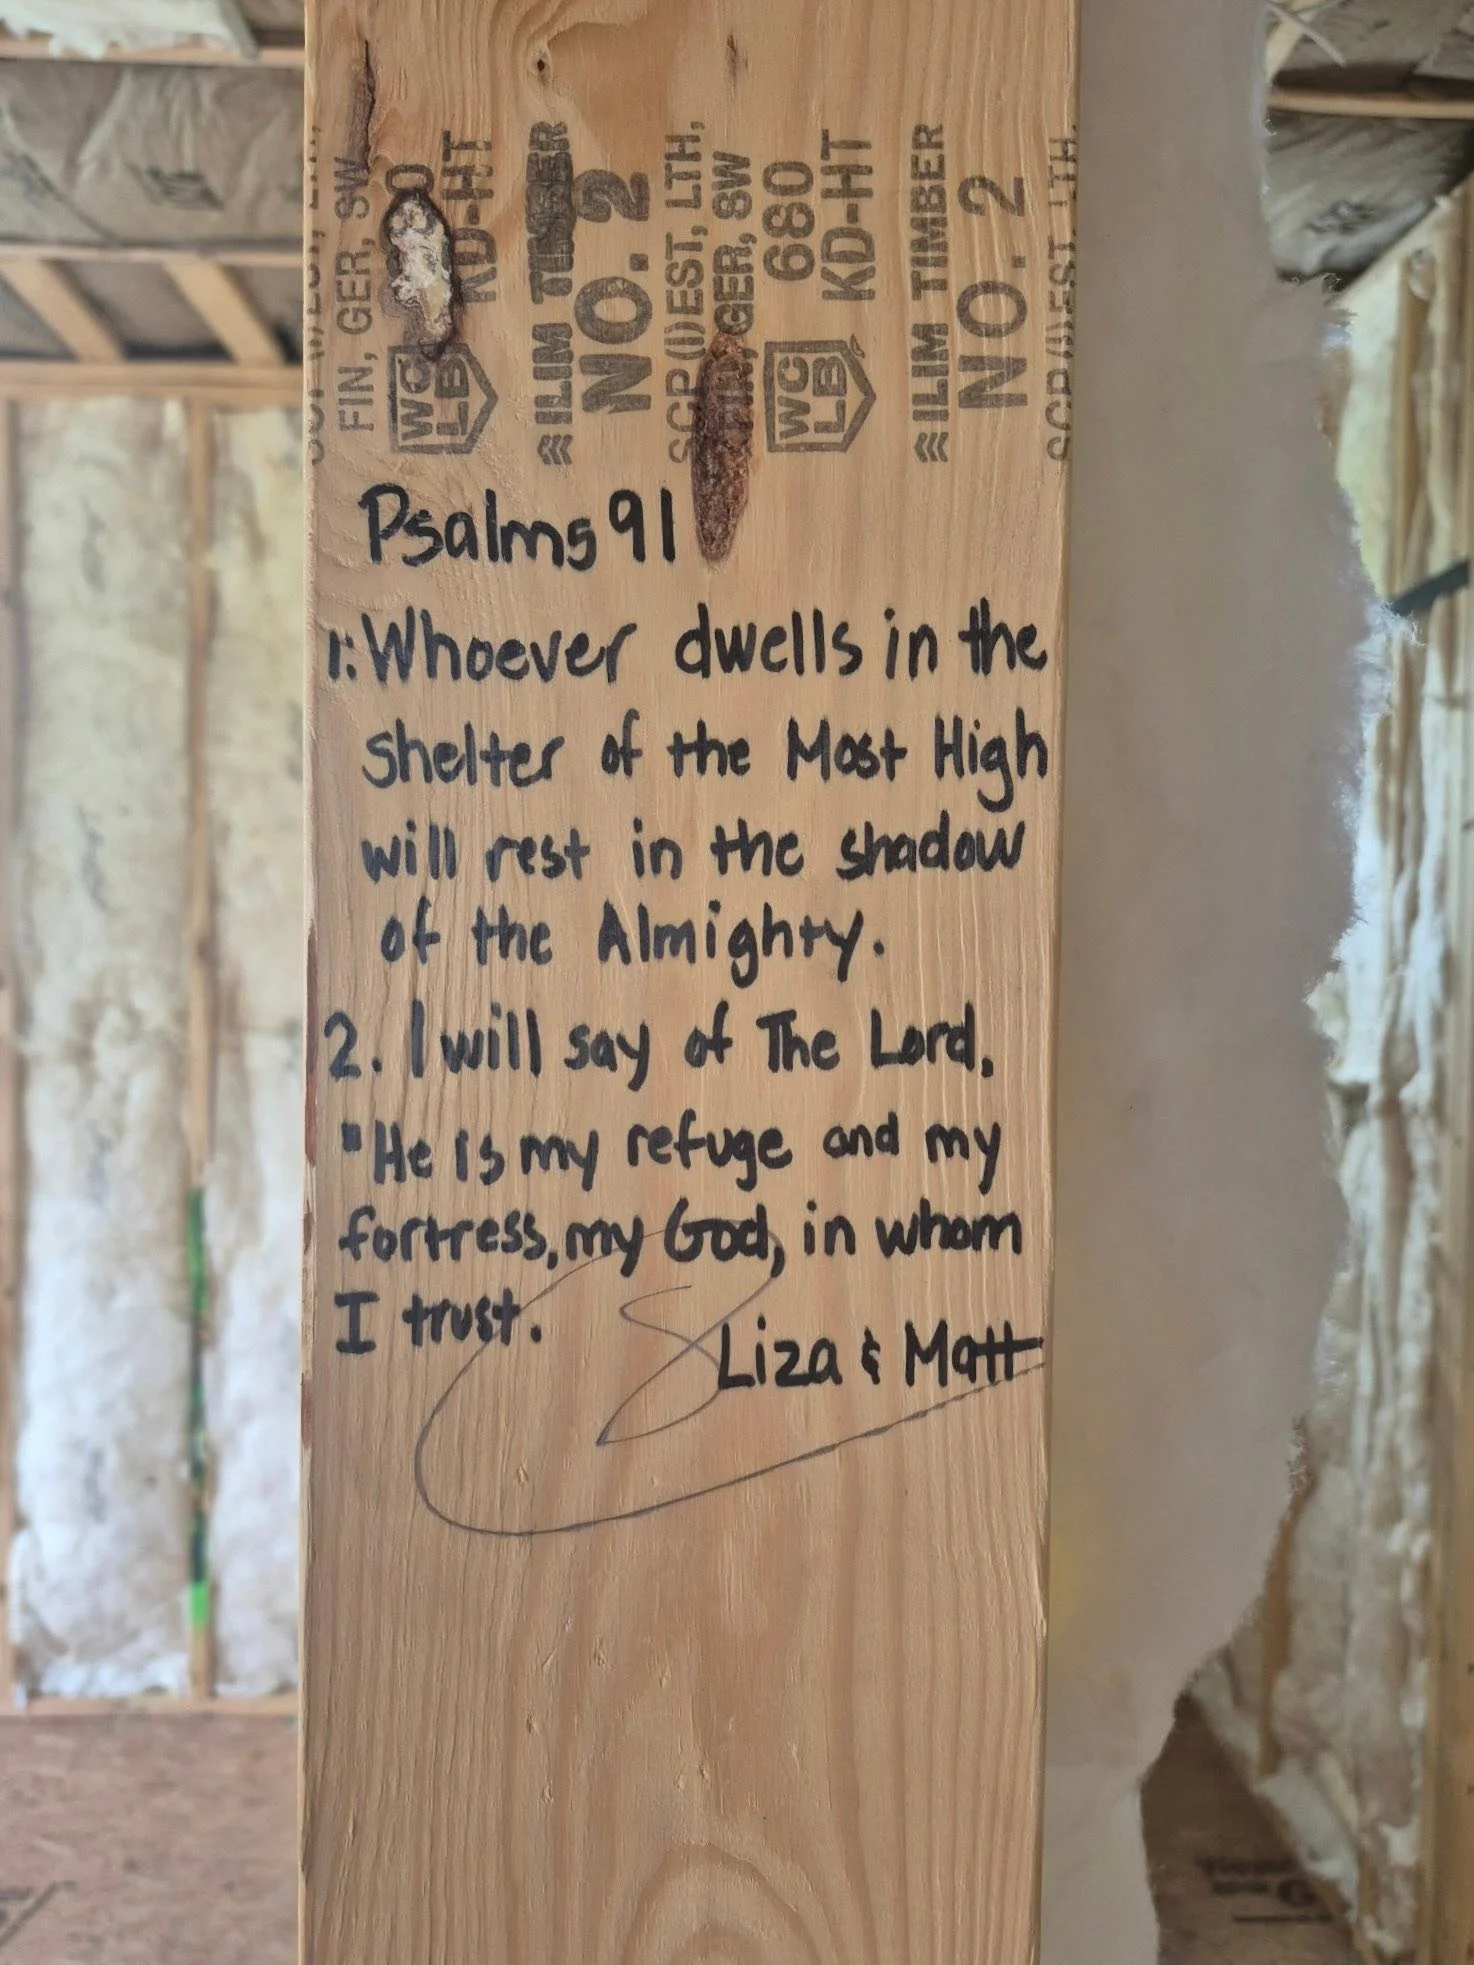 SCP(I)EST, LTH,
FIN, GER, SW
WC
LB
KD-HT
ILIM TIMBER
NO. 2
SCP(I)EST, LTH,
GER, SW
WC
LB
680
KD-HT
ILIM TIMBER
NO. 2
SCP(I)EST, LTH,
Psalms 91
1: Whoever dwells in the
shelter of the Most High
will rest in the shadow
of the Almighty.
2. I will say of The Lord,
"He is my refuge and my
fortress, my God, in whom
I trust.
Liza & Matt